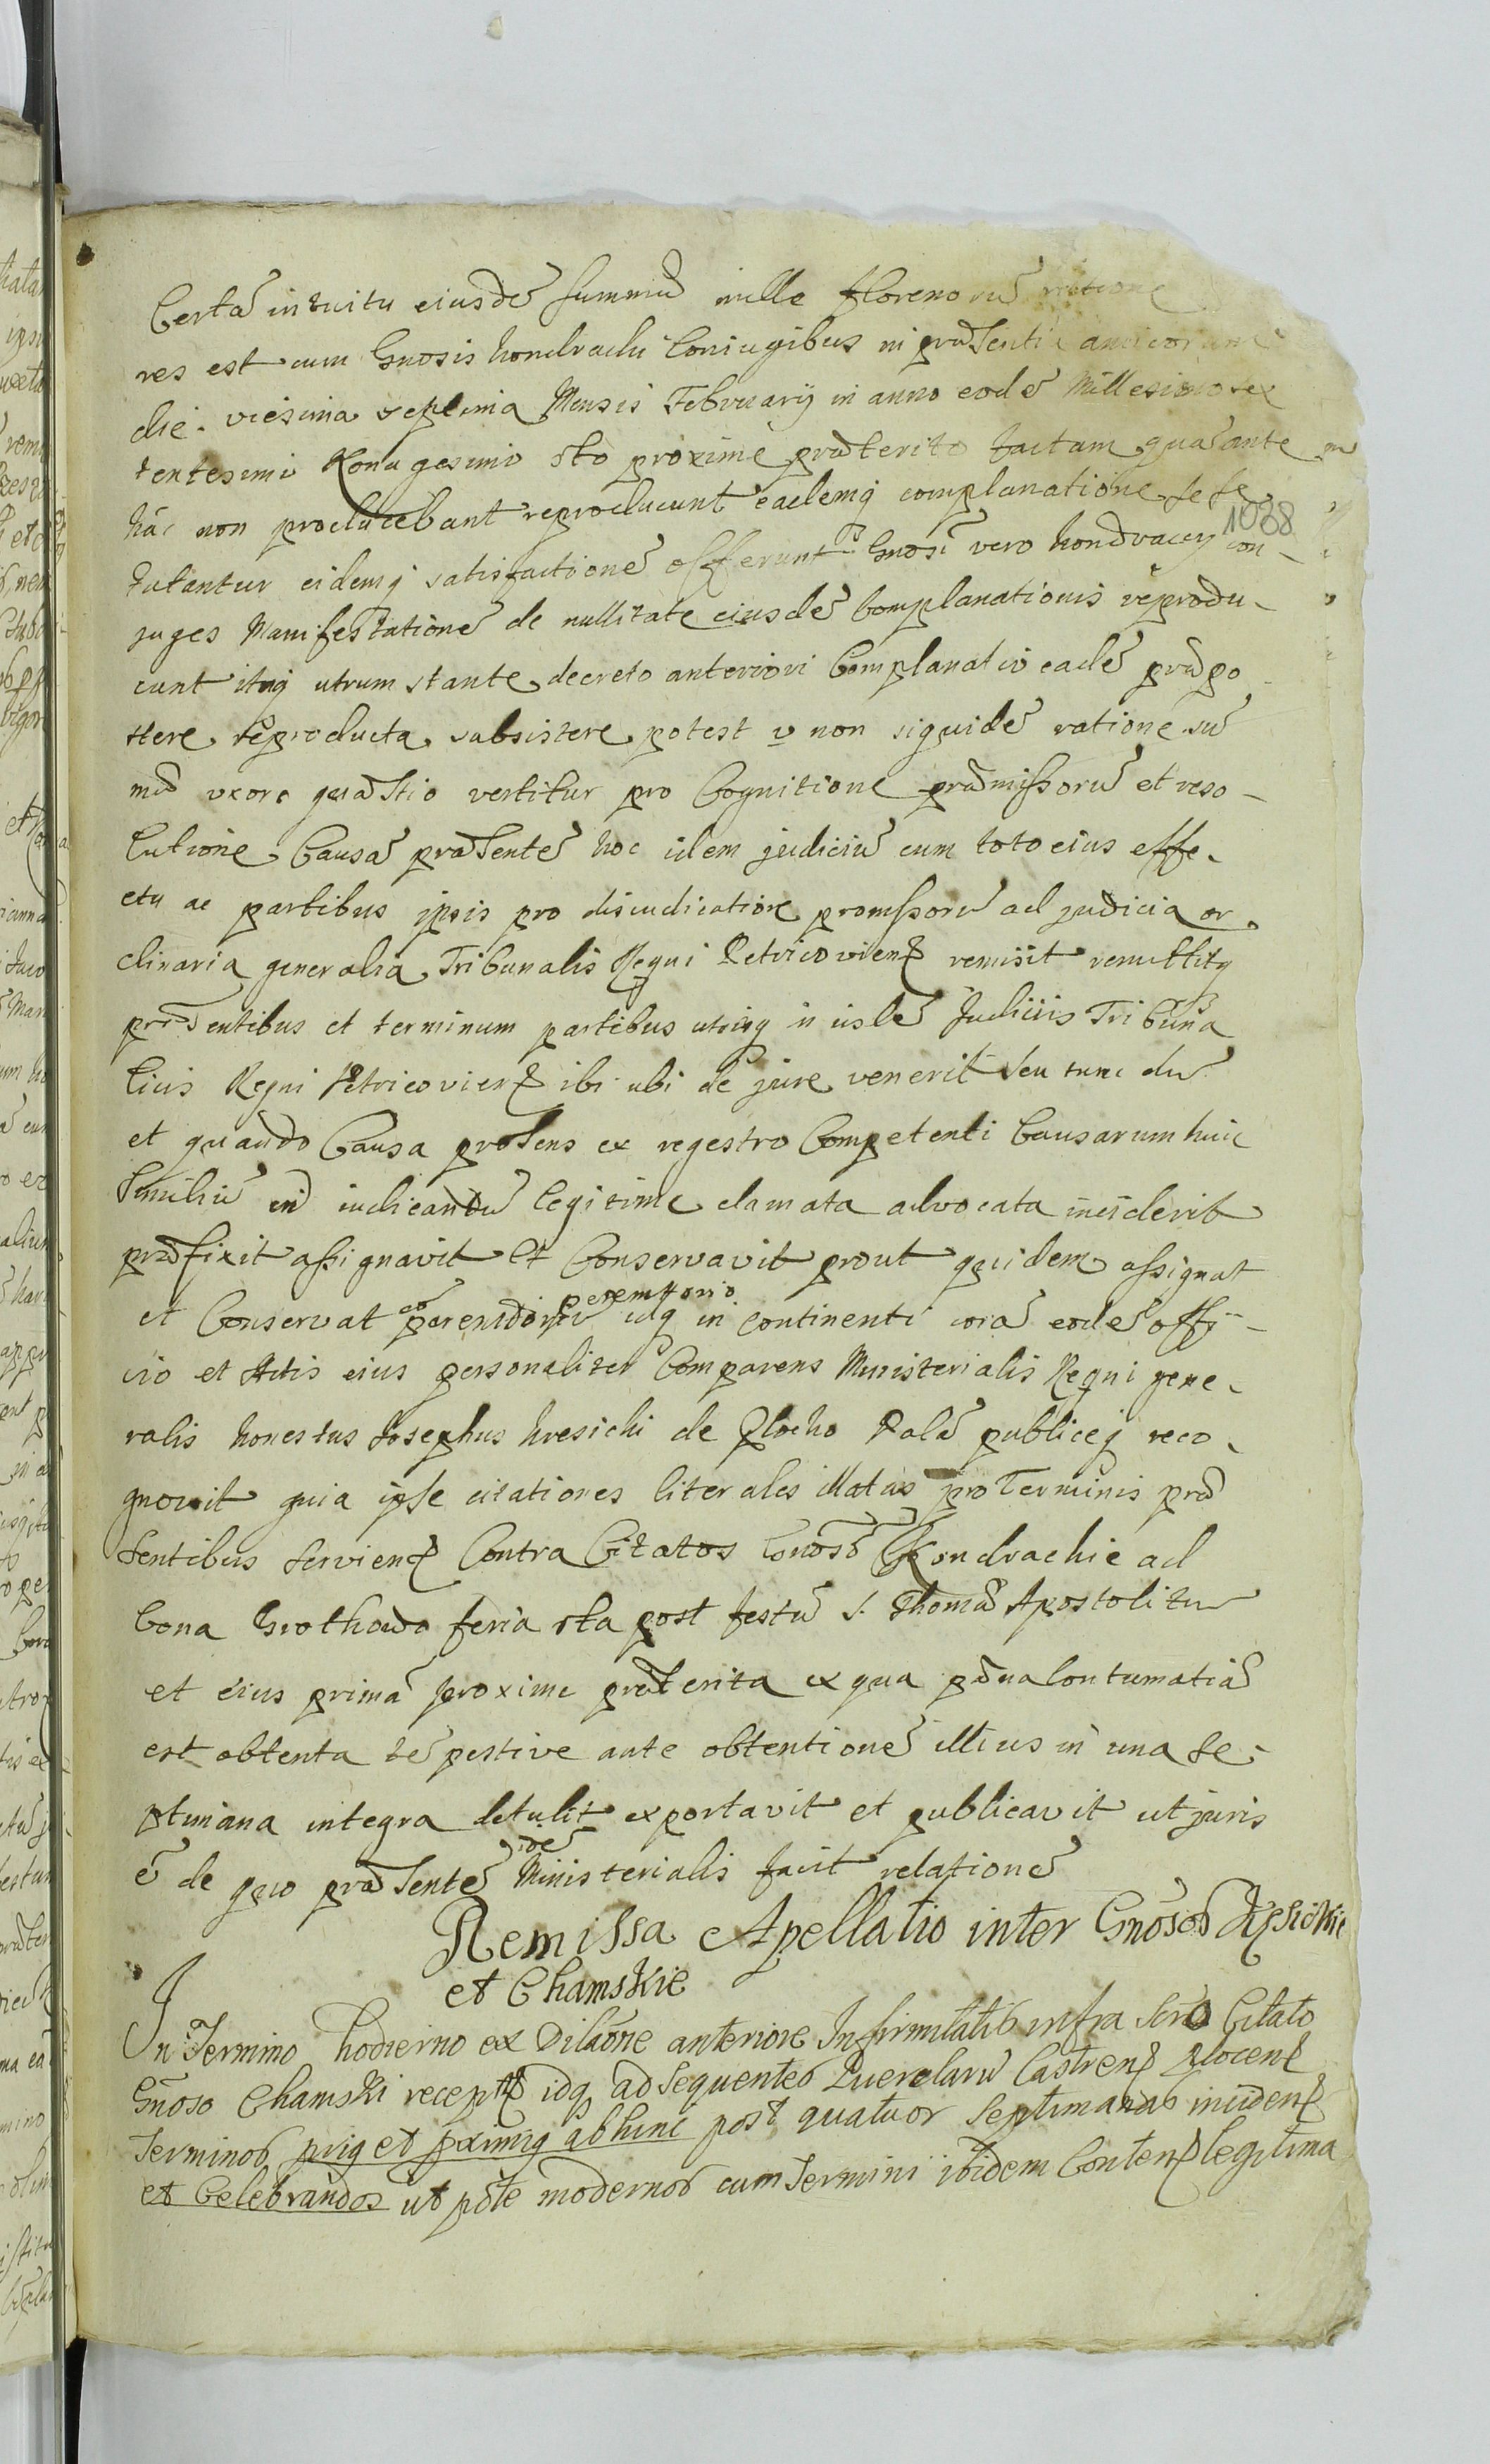 Certã intuitu eiusdẽ summæ mille florenorũ ratione
res est cum Gnosis Kondrachi Coniugibus in præsentia amicorum
die vicsima septima Mensis Februarij in anno eodẽ Millesimo sex
centesimi Nonagesimi sto proxime præterito factam quã ante
hâc non producebant reproducunt eademq complanatione sese
tutantur eidemq satisfactionẽ offerunt Gnosi vero Kondraccy con-
1088
juges Manifestationẽ de nullitate eiusdẽ Complanationis reprodu-
cunt itaq utrum stante decreto anteriori Complanatio eadẽ præpo
stere reproducta subsistere potest v non siquidẽ ratione sũ
mæ uxore quæstio vertitur pro Cognitione præmissorũ et reso-
lutione Causã præsentẽ hoc idem judiciũ cum toto eius effe-
ctu ac partibus ipsis pro disiudicatione promissorũ ad judicia or-
dinaria generalia Tribunalis Regni Petricovien remisit remittitq
præsentibus et terminum partibus utrisq in iisdẽ Judiciis Tribuna
litiis Regni Petricovien ibi ubi de jure venerit seu tunc dũ
et quando Causa præsens ex regestro Competenti Causarum huic
Similiũ ad iudicandũ legitime clamata advocata inciderit
præfixit assignavit et Conservavit prout quidem assignat
et Conservat peremtorio idq in continenti corã eodẽ offi-
cio et Actis eius personaliter Comparens Ministerialis Regni gene-
ralis honestus Josephus Kresichi de Plocko Palã publiceq reco-
gnovit quia ipse citationes literales illatas pro Terminis præ
sentibus servien Contra Citatos Gnosos Kondrachie ad
bona Grothowo feria sta post festũ S. Thomæ Apostoli tũ
et eius primã proxime præterita ex qua pæna Contumatiæ
est obtenta tẽpestive ante obtentionẽ illius in una se-
ptimana integra detulit exportavit et publicavit ut juris
ẽ de quo præsentẽ idẽ Ministerialis facit relationẽ
Remissa Apellatio inter Gnosos
et Chamskie
In Termino hodierno ex Dilaõne anteriore Infirmitatis infra Scro Citato
Gnoso Chamski recept idq ad sequentes Querelarũ Castren Plocen
Terminos priq et pximiq abhinc post quatuor Septimanas inciden
et Celebrandos ut pote modernos cum Termini ibidem Conten legitima